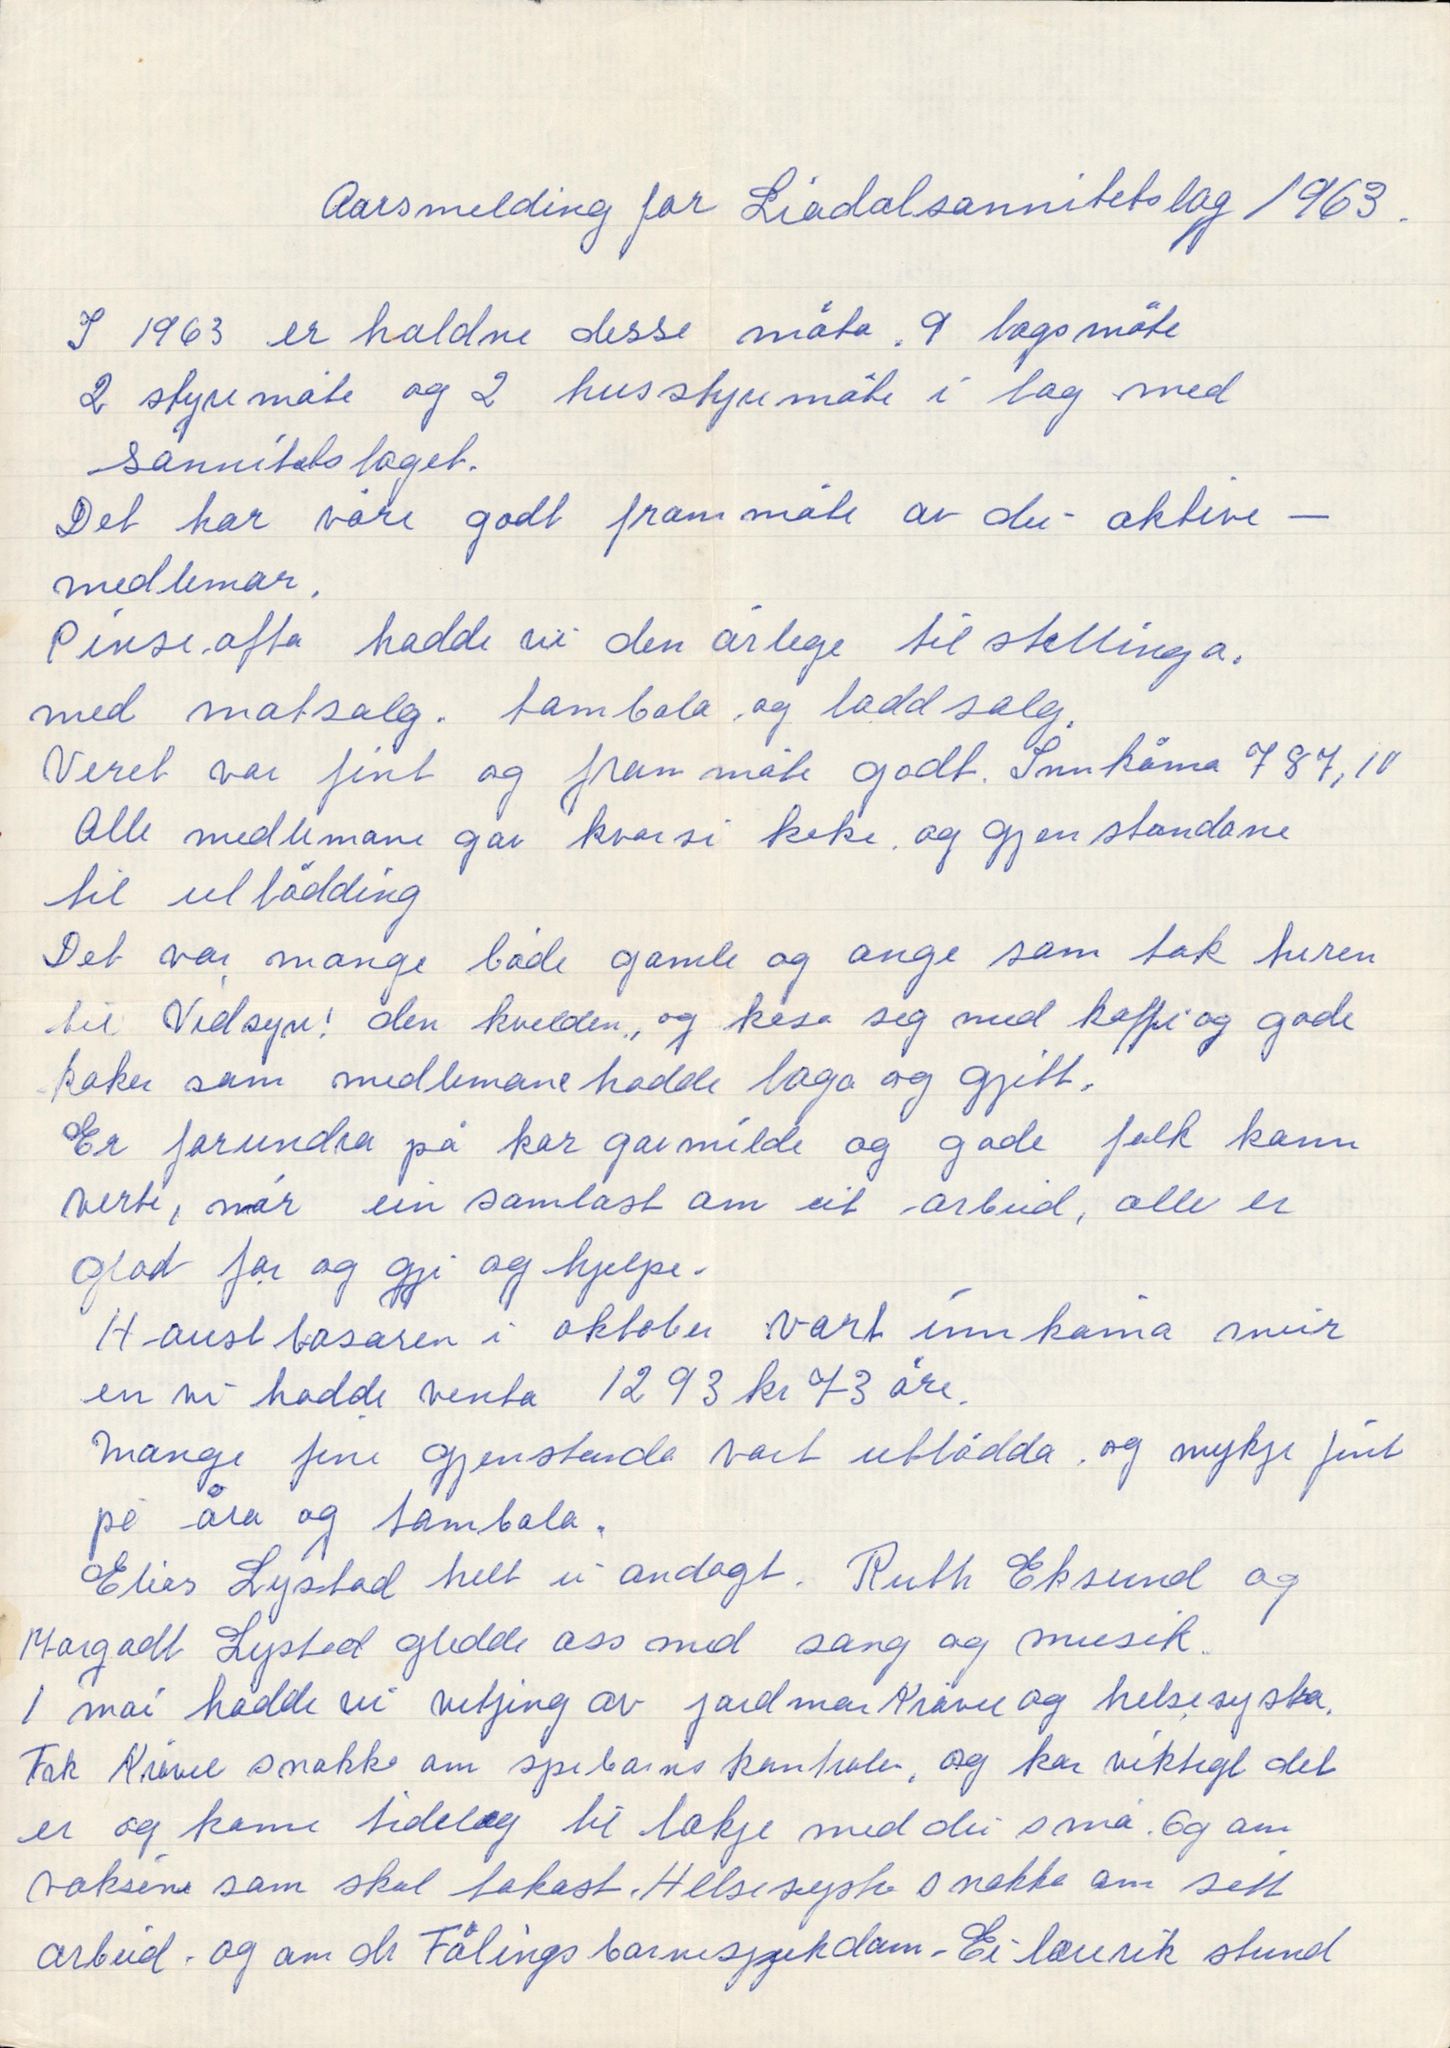 Aarsmelding for Liadalsannitetslag 1963.
I 1963 er haldne desse möta. 9 lagsmöte
2 styremöte og 2 husstyremöte i lag med
sannitetslaget.
Det har våre godt frammöte av dei aktive -
medlemar.
Pinse.afta hadde vi den årlege tilstellinga.
med matsalg. tombola og loddsalg.
Veret var fint og frammöte godt. Innkåma 787,10
Alle medlemane gav kvarsi kake. og gjenstandane
til utlödding
Det var mange både gamle og onge som tok turen
til Vidsyn! den kvelden, og kosa seg med kaffi og gode
kaker som medlemane hadde laga og gjitt.
Er forundra på kor gavmilde og gode folk kann
verte, når ein samlast om eit arbeid, alle er
glad for og gji og hjelpe.
Haustbasaren i oktober vart innkåma meir
en vi hadde venta 1293 kr 73 öre.
Mange fine gjenstanda vart utlödda. og mykje fint
på åra og tombola.
Elias Lystad helt ei andagt. Ruth Eksund og
Margodt Lystad gledde oss med sang og musik.
I mai hadde vi vitjing av jordmor Kråvel og helsesysta.
Frk Kråvel snakka om spebarnskontrolen, og kor viktigt det
er og kome tideleg til lækje med dei små. Og om
vaksine som skal takast. Helsesyste snakka om sitt
arbeid. og om dr Fölings barnesjukdom - Ei lærerik stund